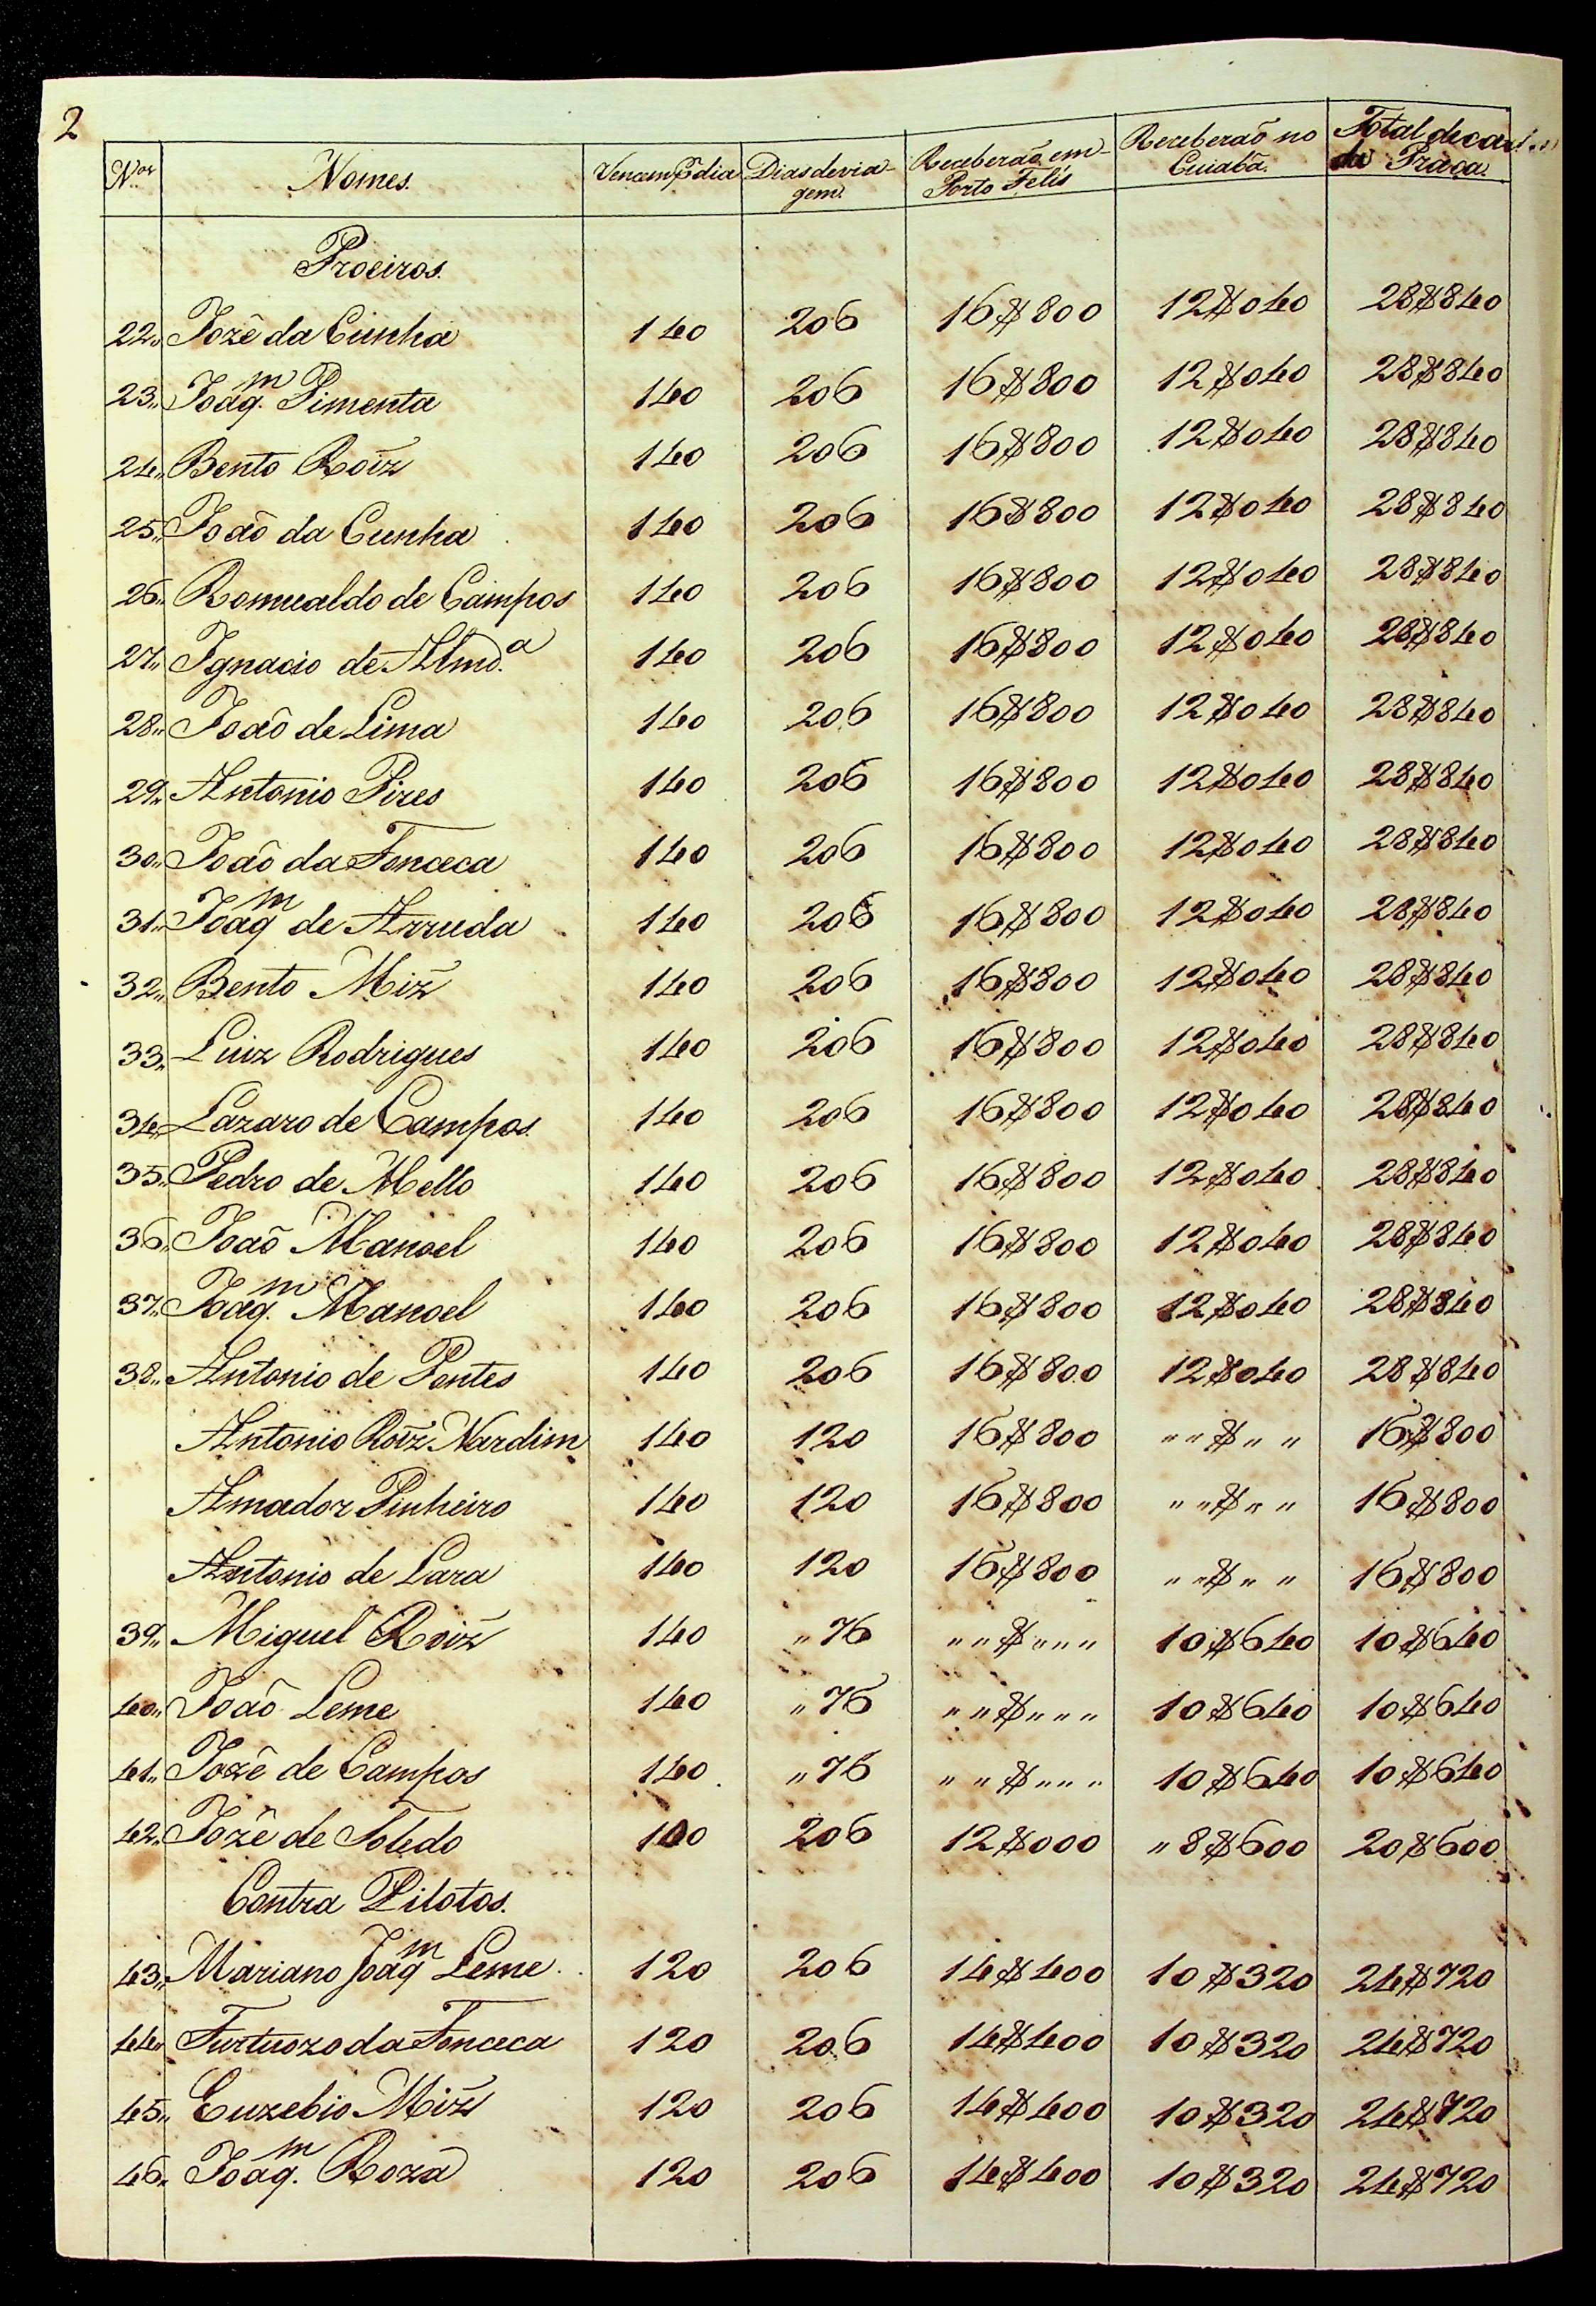 2
N.os Nomes. Vencem p dia Dias de via- Receberaõ em Receberaõ no Total de ca
gem. Porto Felis Cuiabá. da Praça.
Proeiros.
22,, Jozê da Cunha 140 206 16$800 12$040 28$840
23,, Joaq.m Pimenta 140 206 16$800 12$040 28$840
24,, Bento Roiz 140 206 16$800 12$040 28$840
25,, Joaõ da Cunha 140 206 16$800 12$040 28$840
26,, Romualdo de Campos 140 206 16$800 12$040 28$840
27,, Ignacio de Almd.a 140 206 16$800 12$040 28$840
28,, Joaõ de Lima 140 206 16$800 12$040 28$840
29,, Antonio Pires 140 206 16$800 12$040 28$840
30,, Joaõ da Fonceca 140 206 16$800 12$040 28$840
31,, Joaqm de Arruda 140 206 16$800 12$040 28$840
32,, Bento Miz 140 206 16$800 12$040 28$840
33,, Luiz Rodrigues 140 206 16$800 12$040 28$840
34,, Lazaro de Campos. 140 206 16$800 12$040 28$840
35,, Pedro de Mello 140 206 16$800 12$040 28$840
36,, Joaõ Manoel 140 206 16$800 12$040 28$840
37,, Joaq.m Manoel 140 206 16$800 12$040 28$840
38,, Antonio de Pontes 140 206 16$800 12$040 28$840
Antonio Roiz Nardim 140 120 16$800 ,, ,, $ ,, ,, 16$800
Amador Pinheiro 140 120 16$800 ,, ,, $ ,, ,, 16$800
Antonio de Lara 140 120 16$800 ,, ,, $ ,, ,, 16$800
39,, Miguel Roiz 140 ,, 76 ,, ,, $ ,, ,, ,, 10$640 10$640
40,, Joaõ Leme 140 ,, 76 ,, ,, $ ,, ,, ,, 10$640 10$640
41,, Jozê de Campos 140 ,, 76 ,, ,, $ ,, ,, ,, 10$640 10$640
42,, Jozê de Toledo 100 206 12$000 ,, 8$600 20$600
Contra Pilotos.
43,, Mariano Joaqm Leme 120 206 14$400 10$320 24$720
44,, Furtuozo da Fonceca 120 206 14$400 10$320 24$720
45,, Euzebio Miz 120 206 14$400 10$320 24$720
46,, Joaq.m Roza 120 206 14$400 10$320 24$720